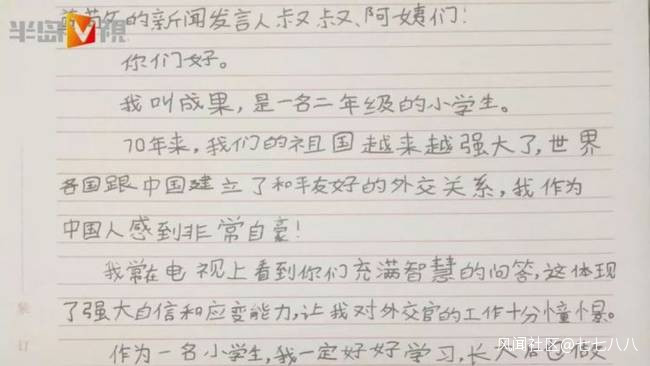 的新闻发言人叔叔、阿姨们!
半岛V视
你们好。
我叫成果,是一名二年级的小学生。
70年来,我们的祖国越来越强大了,世界
各国跟中国建立了和平友好的外交关系,我作为
中国人感到非常自豪!
我常在电视上看到你们充满智慧的问答,这体现
了强大自信和应变能力,让我对外交官的工作十分憧憬。
作为一名小学生,我一定好好学习,长大后
装
订
风闻社区@七七八八